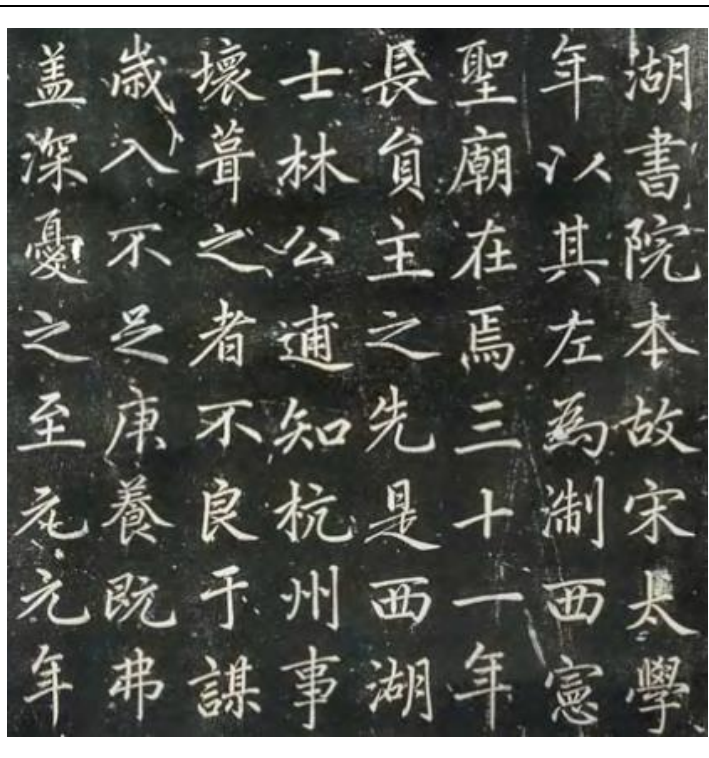 湖書院本故宋太學
年以其左為淛西憲
聖廟在焉三十一年
長貟主之先是西湖
士林公逋知杭州事
壞葺之者不良于謀
歳入不足庚養既弗
盖深憂之至元元年